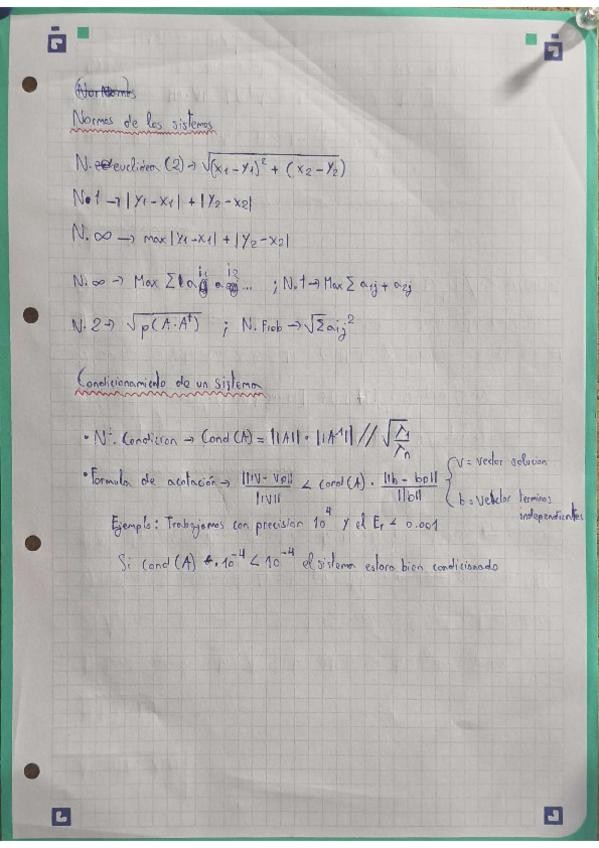 Normas de los sistemas
N. euclidea (2) → √(x1 − y1)² + (x2 − y2)
N. 1 → |y1 − x1| + |y2 − x2|
N. ∞ → max |y1 − x1| + |y2 − x2|
N. ∞ → Max Σ ... ; N. 1 → Max Σ aij + a2j
N. 2 → √ρ(A · Aᵗ) ; N. Frob → √Σ aij²
Condicionamiento de un sistema
• Nº. Condicion → Cond(A) = ||A|| · ||A⁻¹|| // √λ1/λn
• Formula de acotación → ||v − vp||/||v|| < cond(A) · ||b − bp||/||b|| { v = vector solucion
b = vector terminos independientes
Ejemplo: Trabajamos con precision 10⁴ y el Er < 0.001
Si cond(A) · 10⁻⁴ < 10⁻⁴ el sistema estara bien condicionado